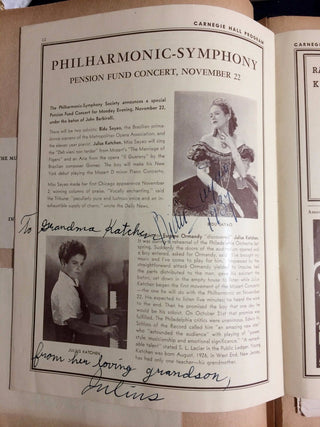 12
CARNEGIE HALL PROGRAM
PHILHARMONIC-SYMPHONY
PENSION FUND CONCERT, NOVEMBER 22
The Philharmonic-Symphony Society announces a special
Pension Fund Concert for Monday Evening, November 22,
under the baton of John Barbirolli.
There will be two soloists: Bidu Sayao, the Brazilian prima
donna soprano of the Metropolitan Opera Association, and
the eleven year pianist, Julius Katchen. Miss Sayao will sing
"Deh vieni non tardar" from Mozart's "The Marriage of
Figaro" and an Aria from the opera "Il Guarany" by the
Brazilian composer Gomes. The boy will make his New
York debut playing the Mozart D minor Piano Concerto.
Miss Sayao made her first Chicago appearance on November
2, winning column of praise. "Vocally exquisite" said
the Tribune; "peculiarly pure and lustrous voice and an in-
exhaustible supply of charm," wrote the Daily News.
BIDU SAYAO
To Grandma Katchen
Eugene Ormandy "discovered" Julius Katchen.
It was during a rehearsal of the Philadelphia Orchestra last
spring. Suddenly the
a boy entered, asked for Ormandy, said "I've brought my
music and I've come to play for him." Impressed by the
straightforward attack Ormandy
the parts distributed to the men,
baton, sat down in the empty house to listen while Julius
Katchen began the first movement of the Mozart Concerto
—the one he will do with the Philharmonic on November
22. He expected to listen five minutes; he heard the work
to the end. Then he promised the boy that one day he
would be his soloist. On October 21st that promise was
fulfilled. The Philadelphia critics were unanimous. Edwin H.
Schloss of the Record called him "an amazing new star"
who "astounded the audience" with playing of "power,
style, musicianship and emotional significance." "A remark-
able talent" stated S. L. Laciar in the Public Ledger. Young
Katchen was born August, 1926, in West End, New Jersey.
He has had only one teacher—his grandmother.
JULIUS KATCHEN
from her loving grandson,
Julius
CARNEGIE HALL